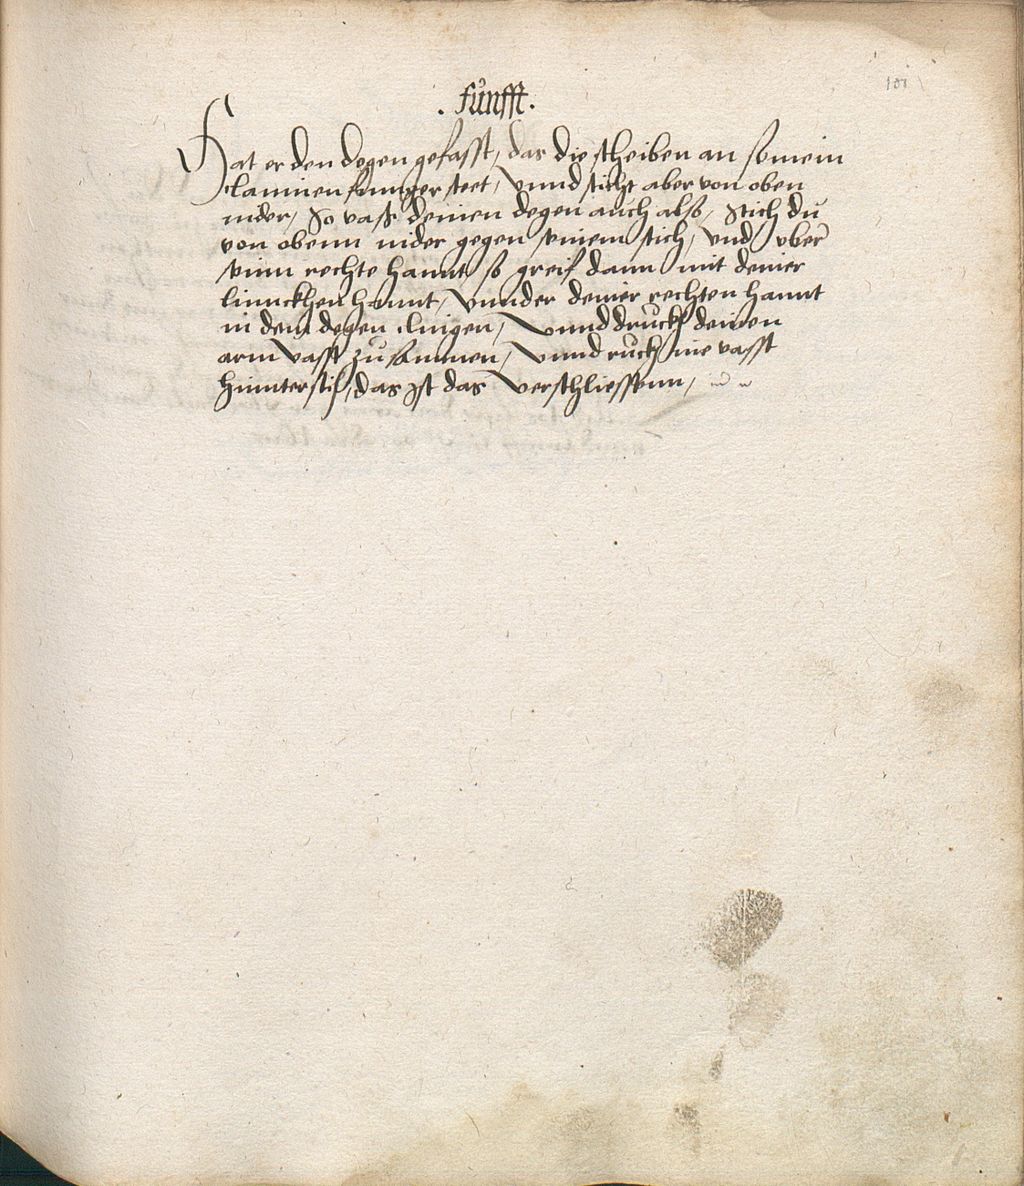 101
. fünfft .
Hat er den degen gefasst, das die scheiben an seinem
clainen finnger steet, Vnnd sticht aber von oben
nider, So vass deinen degen auch also, Stich du
von obenn nider gegen seinem stich, vnd vber
sein rechte hannt so greif dann mit deiner
linnckhen hannt, Vnnder deiner rechten hannt
in dem degen clingen, Vnnd druckh deinen
arm vasst zusammen, Vnnd ruckh ine vasst
hinntersich, das ist das verschliessenn,